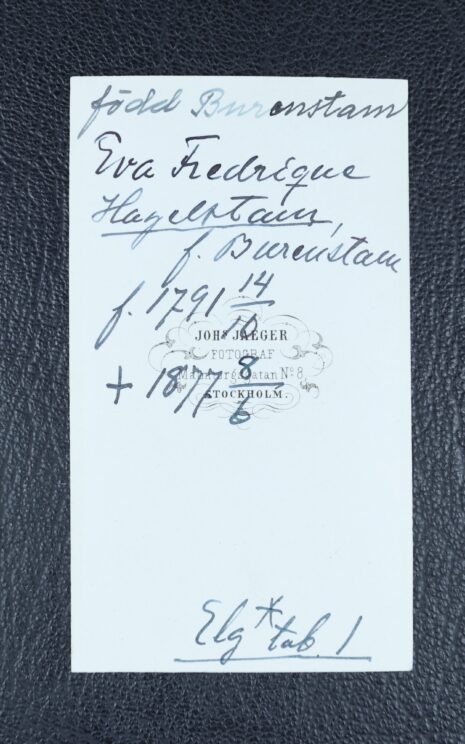 född Burenstam
Eva Fredrique
Hagelstam,
f. Burenstam
f. 1791 14/10
JOHS JAEGER
FOTOGRAF
Malmtorgsgatan No 8
+ 1877 8/6
STOCKHOLM.
Elg * tab. 1